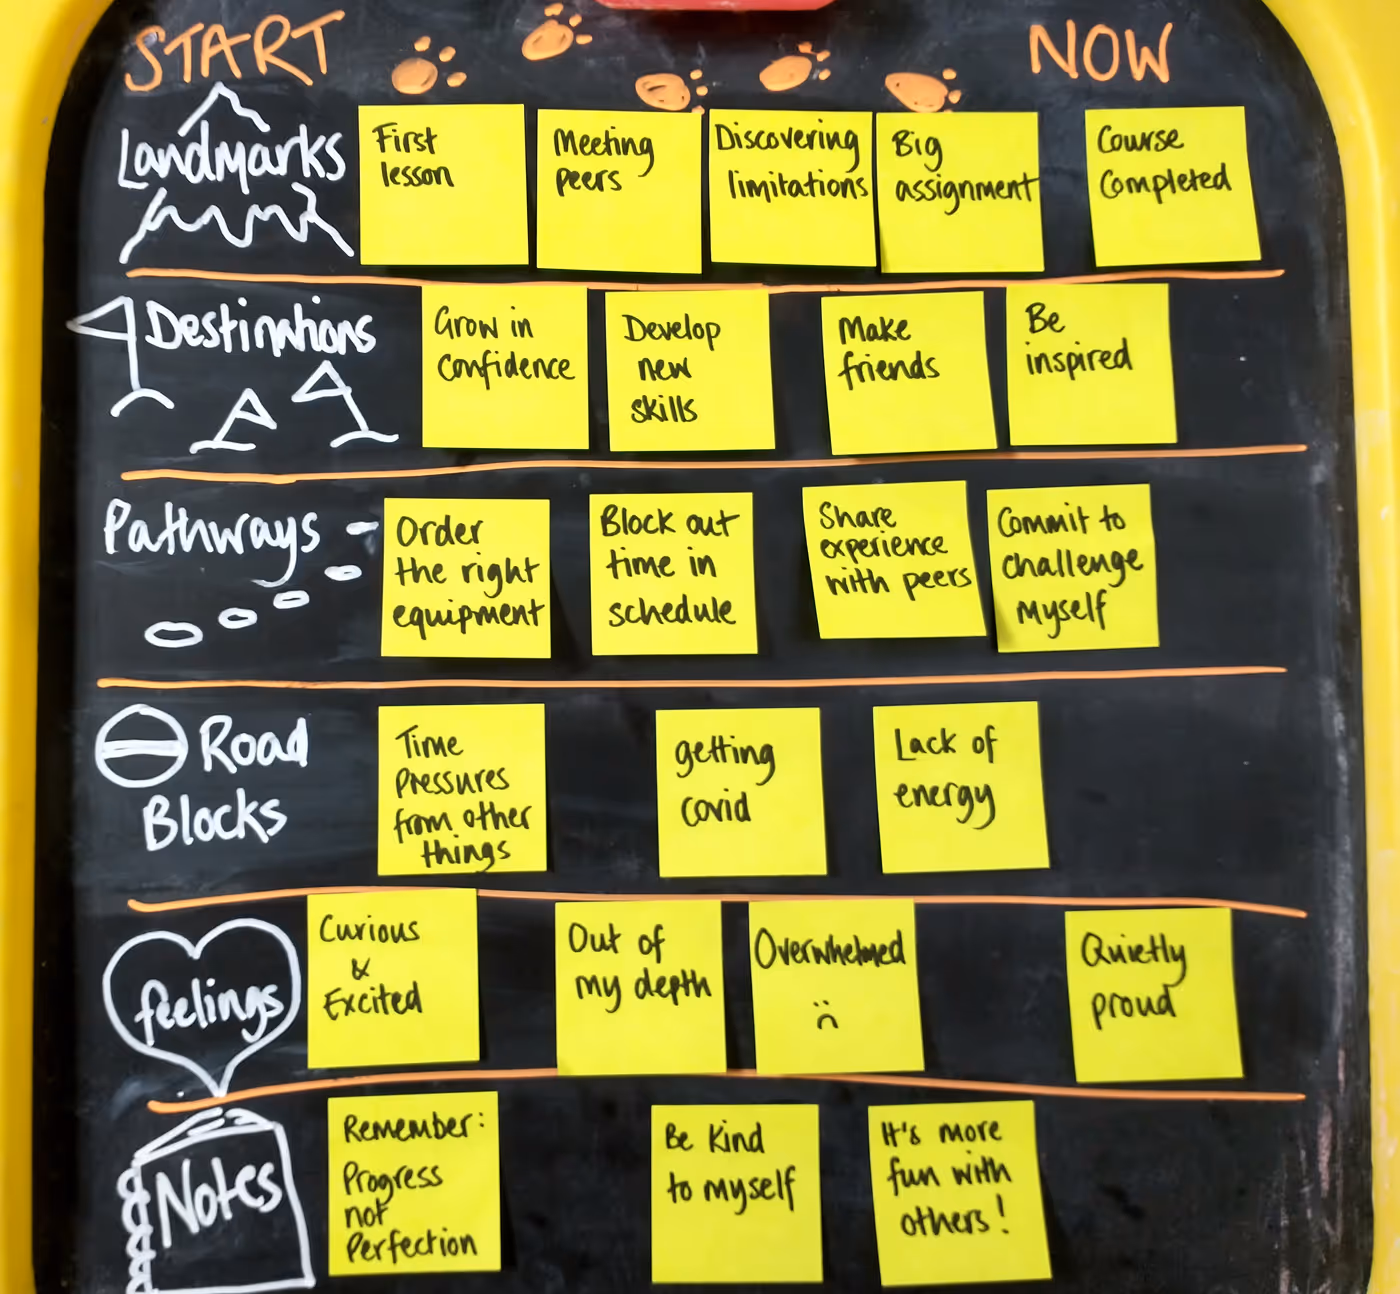 START
NOW
Landmarks
First
lesson
Meeting
peers
Discovering
limitations
Big
assignment
Course
Completed
Destinations
Grow in
Confidence
Develop
new
skills
Make
friends
Be
inspired
Pathways
Order
the right
equipment
Block out
time in
schedule
Share
experience
with peers
Commit to
challenge
myself
Road
Blocks
Time
Pressures
from other
things
getting
covid
Lack of
energy
feelings
Curious
&
Excited
Out of
my depth
Overwhelmed
Quietly
proud
Notes
Remember:
Progress
not
Perfection
Be Kind
to myself
It's more
fun with
others!